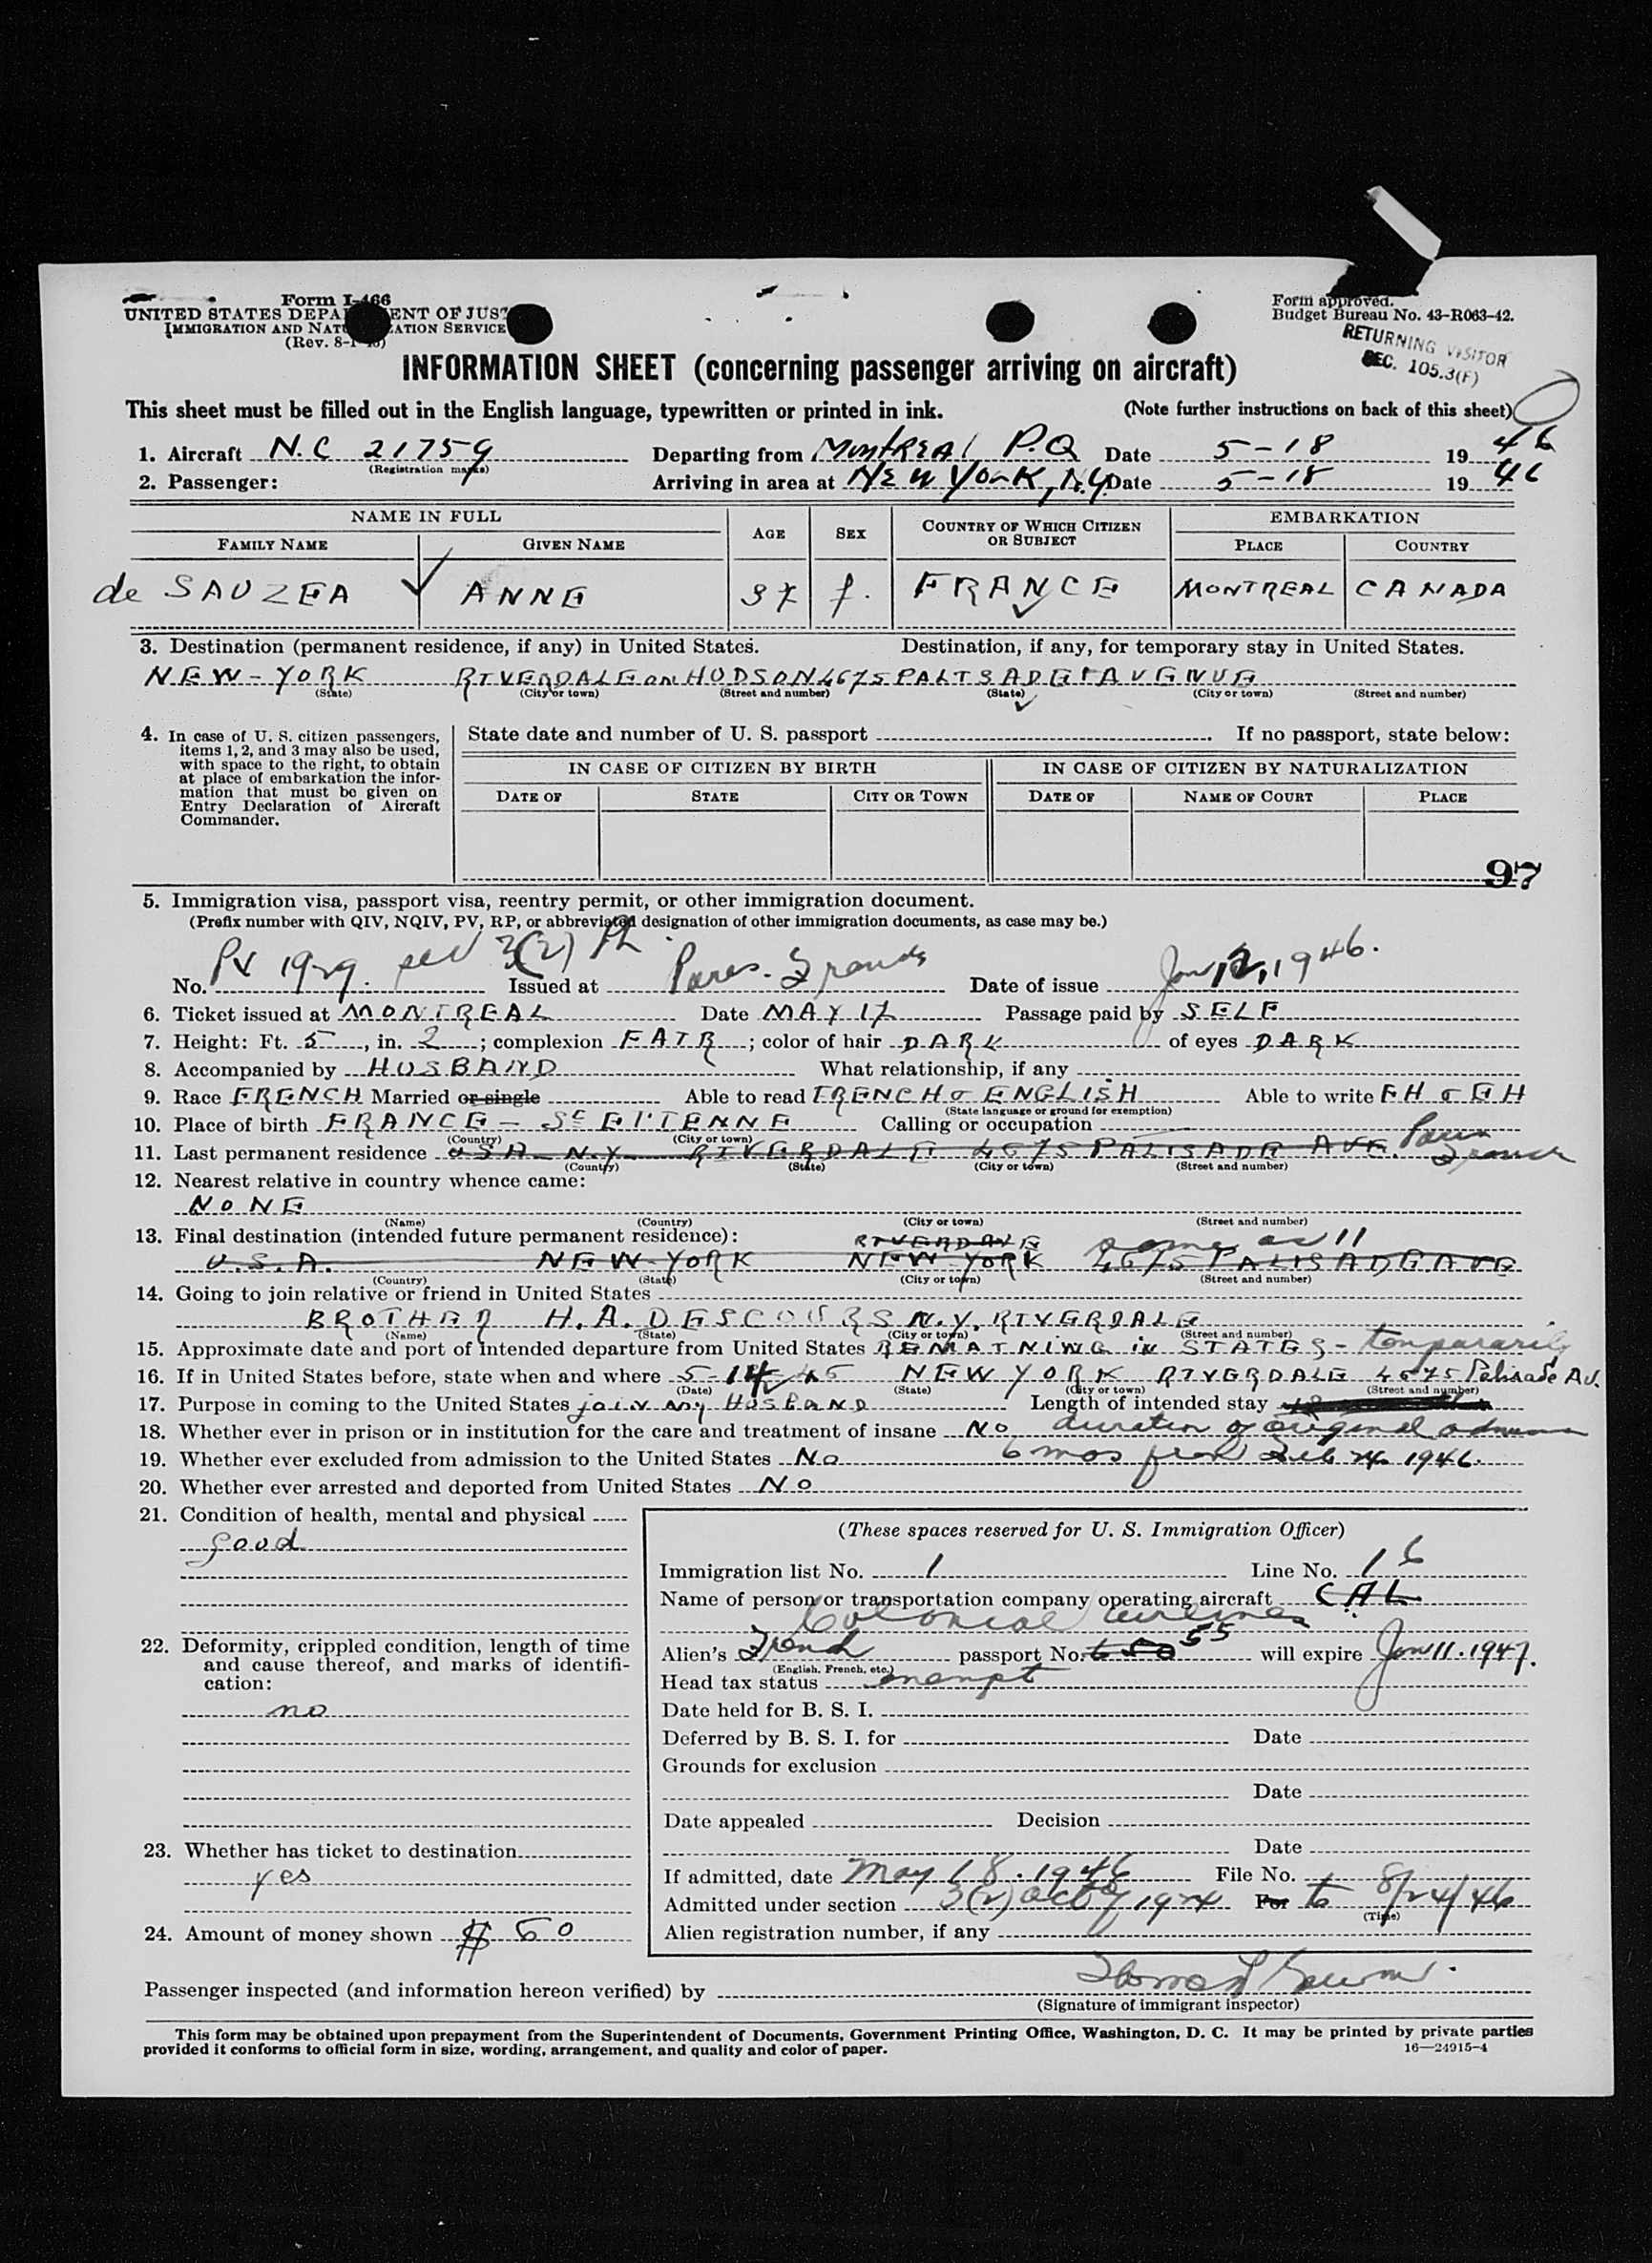 Form I-466
UNITED STATES DEPARTMENT OF JUST
IMMIGRATION AND NATURALIZATION SERVICE
(Rev. 8-1-45)
Form approved.
Budget Bureau No. 43-R063-42.
RETURNING VISITOR
SEC. 105.3(F)
INFORMATION SHEET (concerning passenger arriving on aircraft)
This sheet must be filled out in the English language, typewritten or printed in ink. (Note further instructions on back of this sheet)
1. Aircraft N.C 21759 Departing from Montreal P.Q Date 5-18 1946
(Registration marks)
2. Passenger: Arriving in area at New York, N.Y Date 5-18 1946
NAME IN FULL AGE SEX COUNTRY OF WHICH CITIZEN OR SUBJECT EMBARKATION
FAMILY NAME GIVEN NAME PLACE COUNTRY
de SAUZEA ANNE 37 f. FRANCE MONTREAL CANADA
3. Destination (permanent residence, if any) in United States. Destination, if any, for temporary stay in United States.
NEW-YORK RIVERDALE on HUDSON 4675 PALISADE AVENUE
(State) (City or town) (Street and number) (State) (City or town) (Street and number)
4. In case of U. S. citizen passengers, items 1, 2, and 3 may also be used, with space to the right, to obtain at place of embarkation the information that must be given on Entry Declaration of Aircraft Commander.
State date and number of U. S. passport If no passport, state below:
IN CASE OF CITIZEN BY BIRTH IN CASE OF CITIZEN BY NATURALIZATION
DATE OF STATE CITY OR TOWN DATE OF NAME OF COURT PLACE
97
5. Immigration visa, passport visa, reentry permit, or other immigration document.
(Prefix number with QIV, NQIV, PV, RP, or abbreviated designation of other immigration documents, as case may be.)
No. PV 1929 3(2) Issued at Paris - France Date of issue Jan 12, 1946.
6. Ticket issued at MONTREAL Date MAY 17 Passage paid by SELF
7. Height: Ft. 5, in. 2; complexion FAIR; color of hair DARK of eyes DARK
8. Accompanied by HUSBAND What relationship, if any
9. Race FRENCH Married or single Able to read FRENCH & ENGLISH Able to write FH & EH
(State language or ground for exemption)
10. Place of birth FRANCE - St ETIENNE Calling or occupation
(Country) (City or town)
11. Last permanent residence USA N.Y. RIVERDALE 4675 PALISADE AVE. Paris France
(Country) (State) (City or town) (Street and number)
12. Nearest relative in country whence came:
NONE
(Name) (Country) (City or town) (Street and number)
13. Final destination (intended future permanent residence): RIVERDALE same as 11
U.S.A. NEW-YORK NEW-YORK 4675 PALISADE AVE
(Country) (State) (City or town) (Street and number)
14. Going to join relative or friend in United States
BROTHER H.A. DESCOURS N.Y. RIVERDALE
(Name) (State) (City or town) (Street and number)
15. Approximate date and port of intended departure from United States REMAINING in STATES - temporarily
16. If in United States before, state when and where 5-14 NEW YORK RIVERDALE 4675 Palisade Av.
(Date) (State) (City or town) (Street and number)
17. Purpose in coming to the United States join my HUSBAND Length of intended stay
18. Whether ever in prison or in institution for the care and treatment of insane No duration of original
19. Whether ever excluded from admission to the United States No 6 mos from Feb 24 1946.
20. Whether ever arrested and deported from United States No
21. Condition of health, mental and physical
good
22. Deformity, crippled condition, length of time and cause thereof, and marks of identification:
no
23. Whether has ticket to destination
yes
24. Amount of money shown $ 50
(These spaces reserved for U. S. Immigration Officer)
Immigration list No. 1 Line No. 16
Name of person or transportation company operating aircraft CAL
Colonial Airlines
Alien's French passport No. 55 will expire Jan 11. 1947.
(English, French, etc.)
Head tax status exempt
Date held for B. S. I.
Deferred by B. S. I. for Date
Grounds for exclusion
Date
Date appealed Decision
Date
If admitted, date May 18. 1946 File No.
Admitted under section 3(2) act of 1924 For to 8/24/46
(Time)
Alien registration number, if any
Passenger inspected (and information hereon verified) by
(Signature of immigrant inspector)
This form may be obtained upon prepayment from the Superintendent of Documents, Government Printing Office, Washington, D. C. It may be printed by private parties
provided it conforms to official form in size, wording, arrangement, and quality and color of paper. 16—24915-4